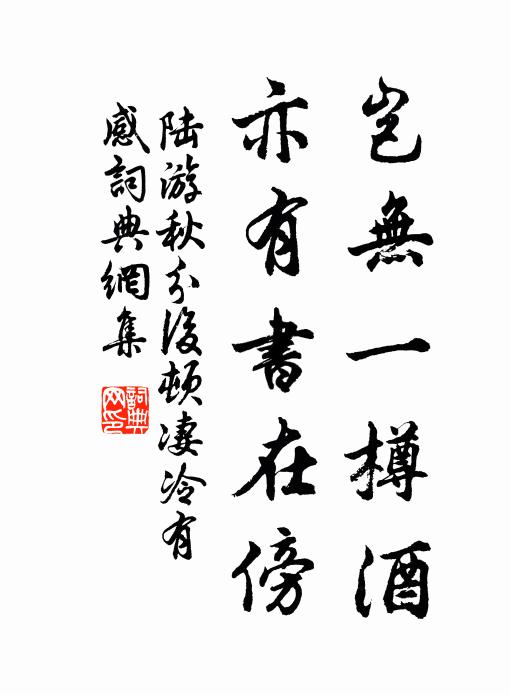 岂無一樽酒
亦有書在傍
陆游秋分後頓凄冷有
感詞典網集
詞典
网印